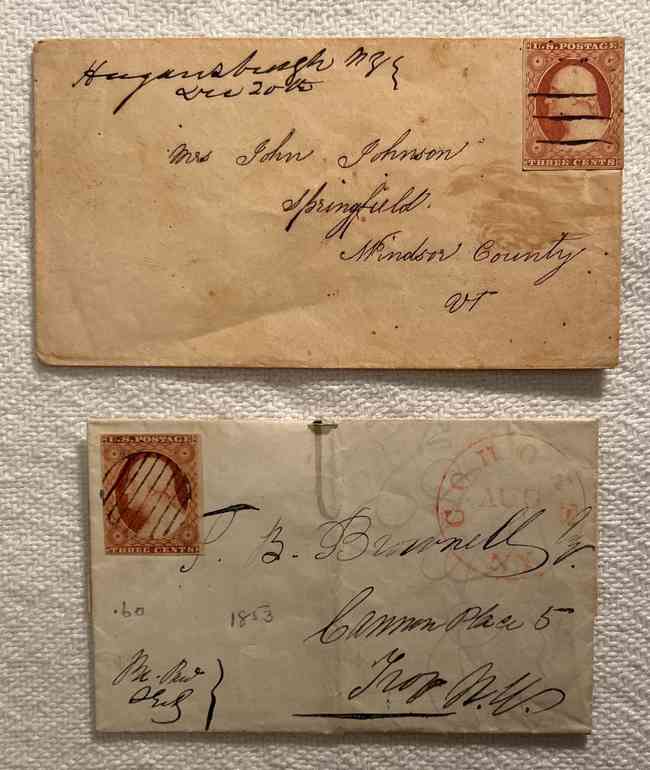 Hogansburgh NY
Dec 20th
U.S. POSTAGE
THREE CENTS
Mrs John Johnson
Springfield.
Windsor County
VT
U.S. POSTAGE
THREE CENTS
COHO
AUG
NY
B. Brownell
.60
1853
Cannon Place 5
Troy N.Y.